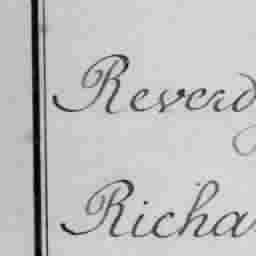 Reverdy
Richa